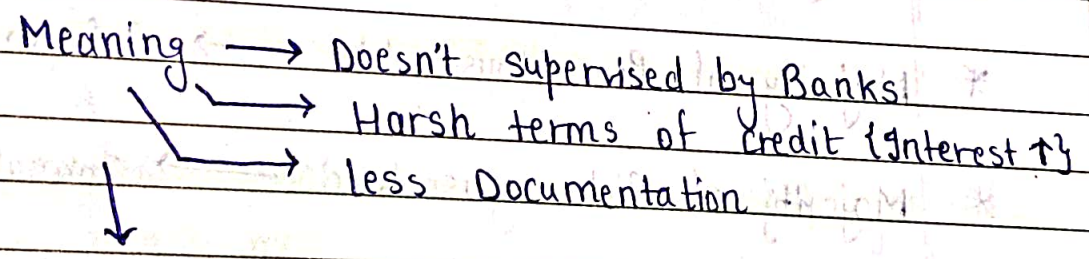 Meaning → Doesn't supervised by Banks.
→ Harsh terms of credit {Interest ↑}
→ less Documentation
↓